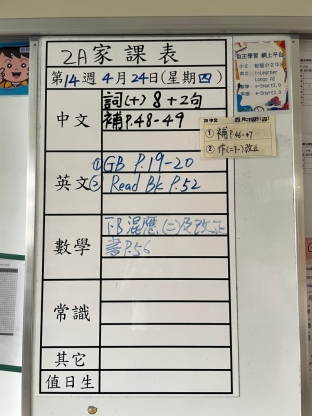 2A家課表
第14週 4月24日(星期四)
中文
詞(十) 8+2句
補P.48-49
① 補P.46-47
② 作(二下)改正
英文
① GB P.19-20
② Read Bk P.52
數學
下B混應(二)及改正
書P.56
常識
其它
值日生
自主學習 網上平台